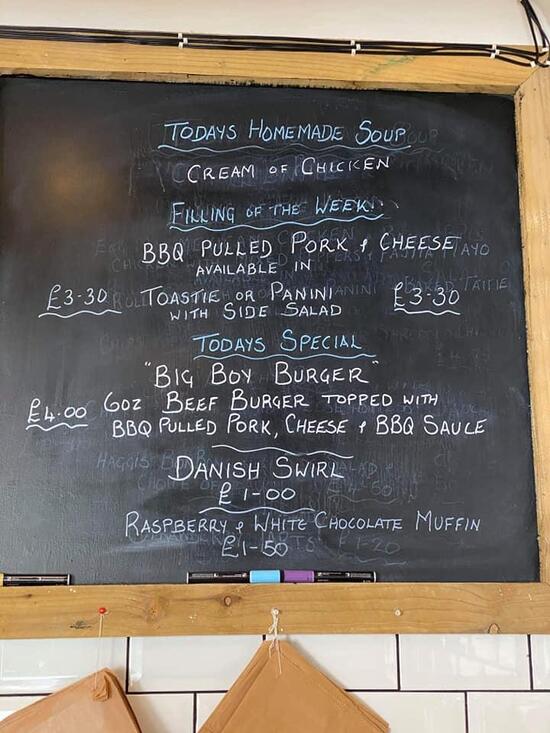 TODAYS HOMEMADE SOUP
CREAM OF CHICKEN
FILLING OF THE WEEK:
BBQ PULLED PORK & CHEESE
AVAILABLE IN
£3-30 TOASTIE OR PANINI £3-30
WITH SIDE SALAD
TODAYS SPECIAL
"BIG BOY BURGER"
£4.00 6OZ BEEF BURGER TOPPED WITH
BBQ PULLED PORK, CHEESE & BBQ SAUCE
DANISH SWIRL
£1-00
RASPBERRY & WHITE CHOCOLATE MUFFIN
£1-50